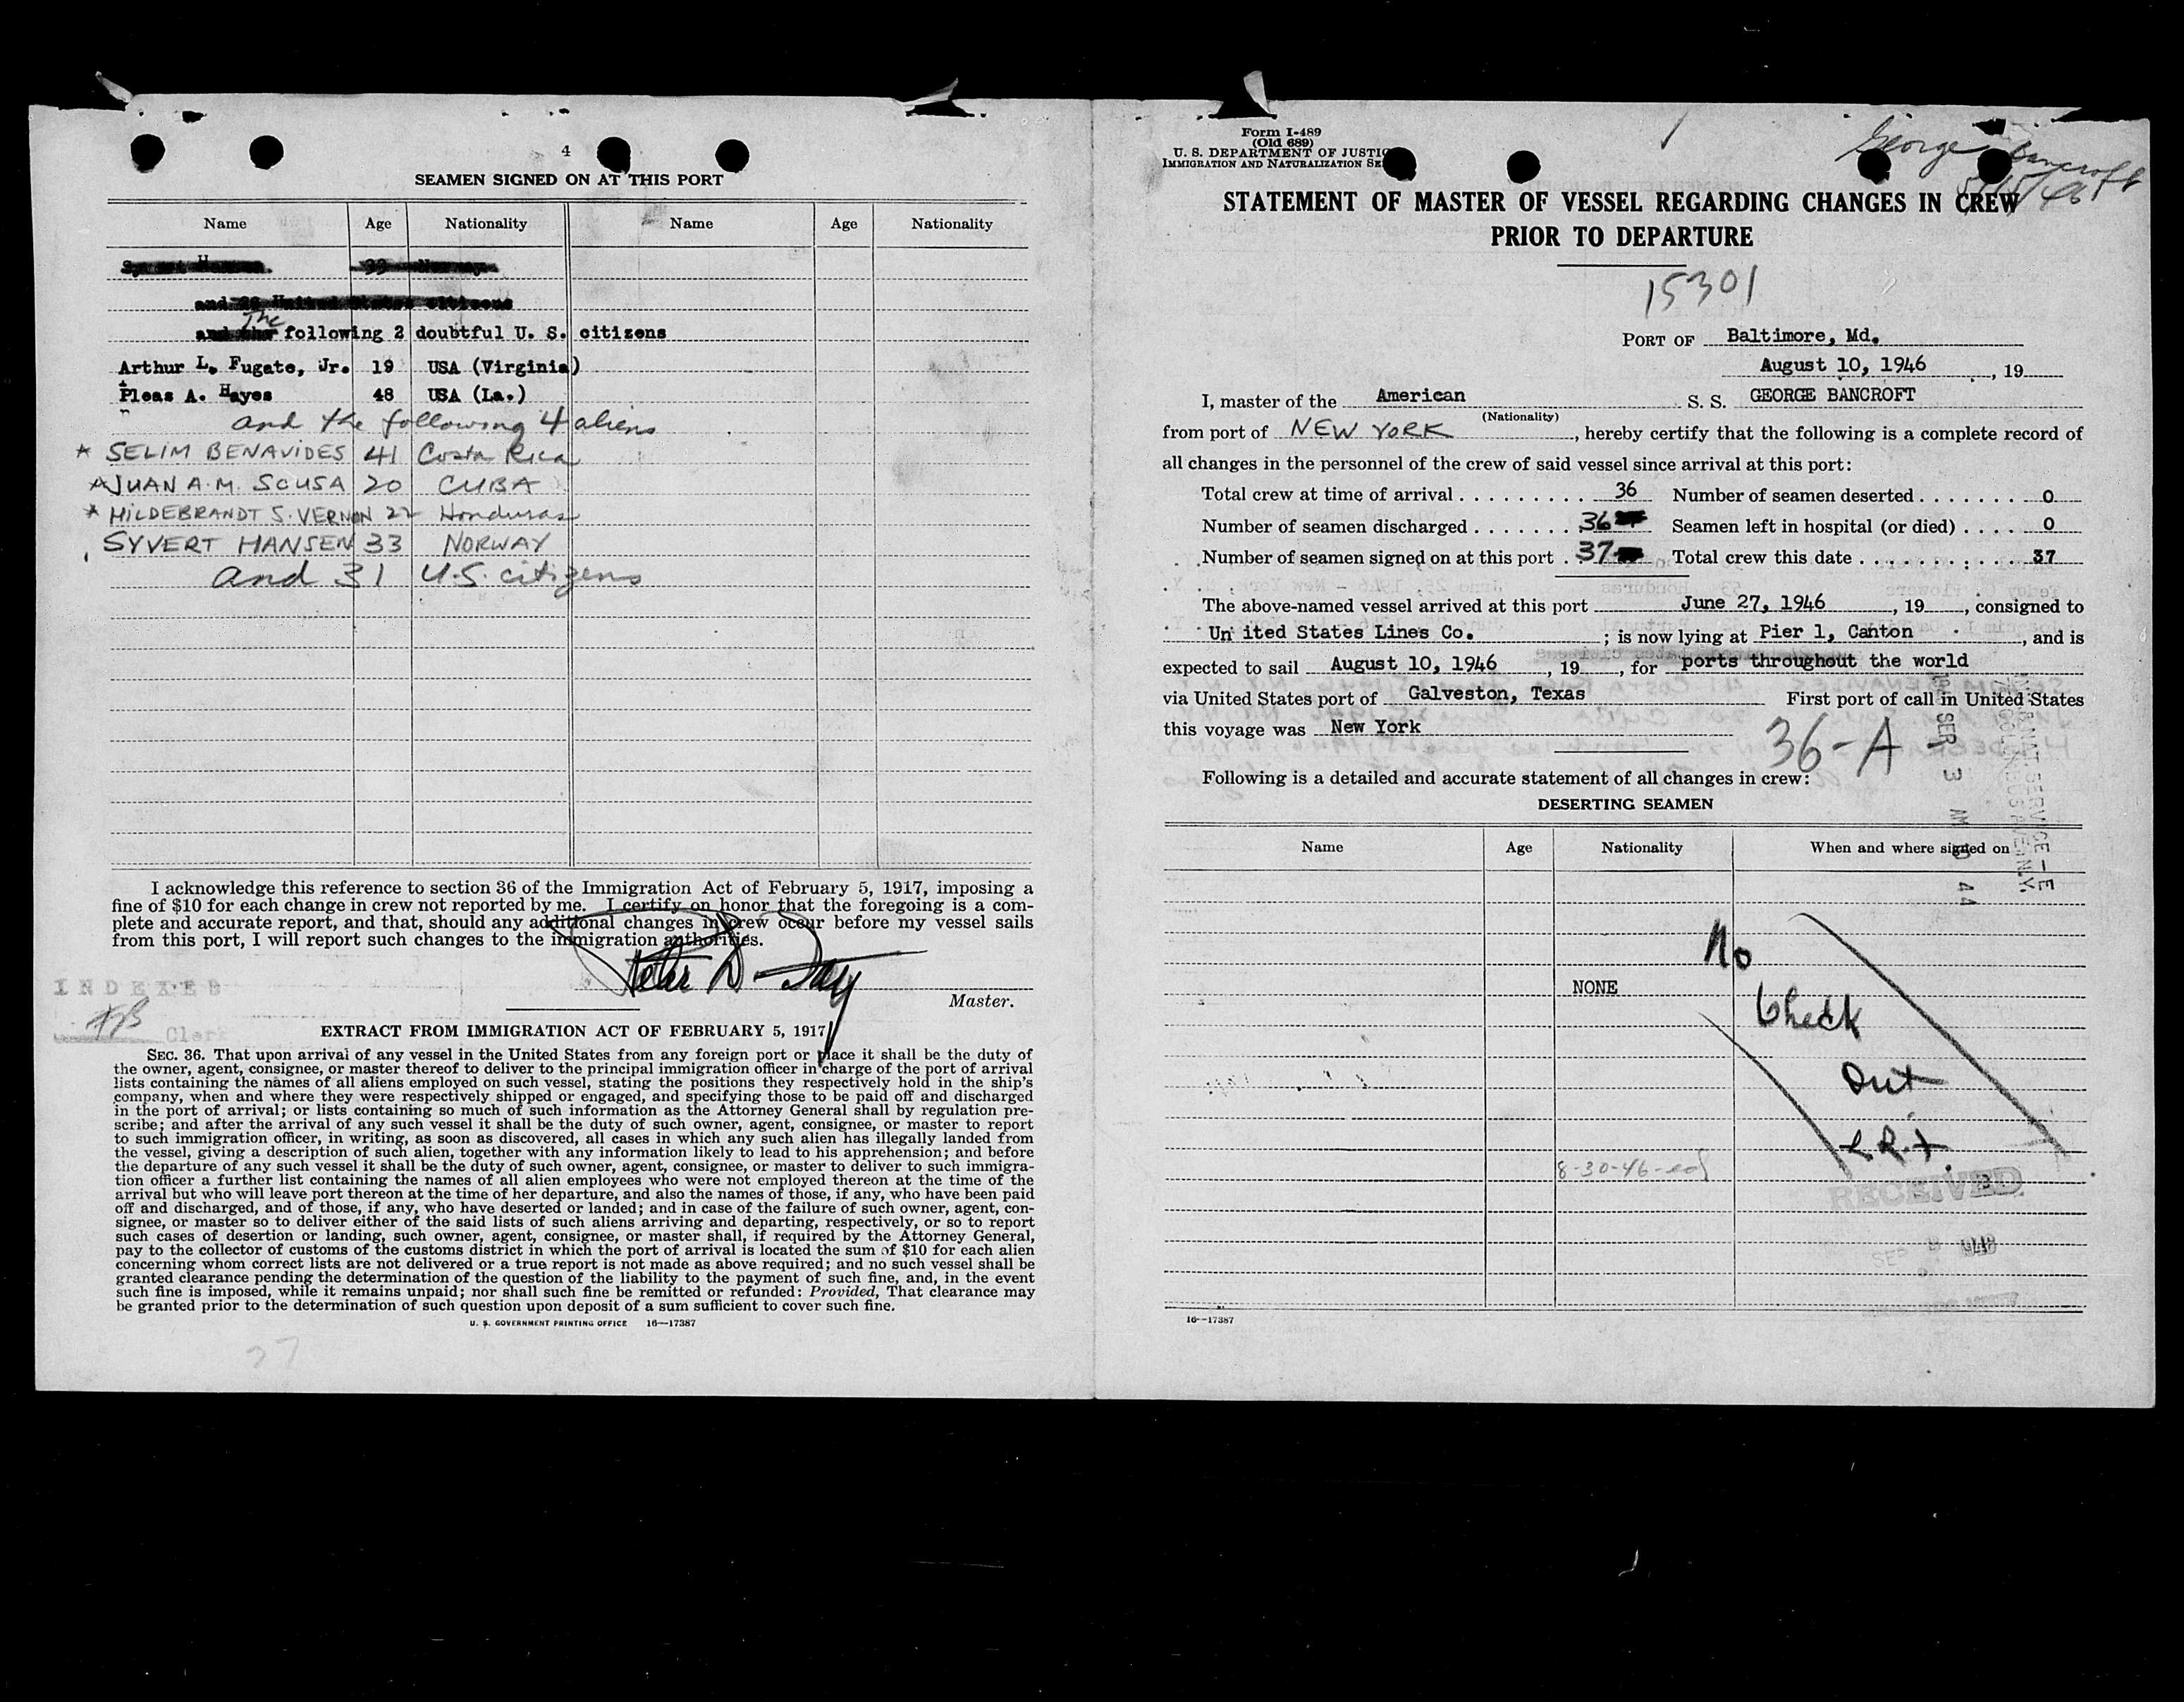 4
SEAMEN SIGNED ON AT THIS PORT
Name Age Nationality Name Age Nationality
33 Norway
and 26 United States citizens
The following 2 doubtful U. S. citizens
Arthur L. Fugate, Jr. 19 USA (Virginia)
Pleas A. Hayes 48 USA (La.)
and the following 4 aliens
* SELIM BENAVIDES 41 Costa Rica
* JUAN A. M. SOUSA 20 CUBA
* HILDEBRANDT S. VERNON 22 Honduras
SYVERT HANSEN 33 NORWAY
and 31 U.S. citizens
I acknowledge this reference to section 36 of the Immigration Act of February 5, 1917, imposing a
fine of $10 for each change in crew not reported by me. I certify on honor that the foregoing is a com-
plete and accurate report, and that, should any additional changes in crew occur before my vessel sails
from this port, I will report such changes to the immigration authorities.
Master.
INDEXED
Clerk
EXTRACT FROM IMMIGRATION ACT OF FEBRUARY 5, 1917
SEC. 36. That upon arrival of any vessel in the United States from any foreign port or place it shall be the duty of
the owner, agent, consignee, or master thereof to deliver to the principal immigration officer in charge of the port of arrival
lists containing the names of all aliens employed on such vessel, stating the positions they respectively hold in the ship's
company, when and where they were respectively shipped or engaged, and specifying those to be paid off and discharged
in the port of arrival; or lists containing so much of such information as the Attorney General shall by regulation pre-
scribe; and after the arrival of any such vessel it shall be the duty of such owner, agent, consignee, or master to report
to such immigration officer, in writing, as soon as discovered, all cases in which any such alien has illegally landed from
the vessel, giving a description of such alien, together with any information likely to lead to his apprehension; and before
the departure of any such vessel it shall be the duty of such owner, agent, consignee, or master to deliver to such immigra-
tion officer a further list containing the names of all alien employees who were not employed thereon at the time of the
arrival but who will leave port thereon at the time of her departure, and also the names of those, if any, who have been paid
off and discharged, and of those, if any, who have deserted or landed; and in case of the failure of such owner, agent, con-
signee, or master so to deliver either of the said lists of such aliens arriving and departing, respectively, or so to report
such cases of desertion or landing, such owner, agent, consignee, or master shall, if required by the Attorney General,
pay to the collector of customs of the customs district in which the port of arrival is located the sum of $10 for each alien
concerning whom correct lists are not delivered or a true report is not made as above required; and no such vessel shall be
granted clearance pending the determination of the question of the liability to the payment of such fine, and, in the event
such fine is imposed, while it remains unpaid; nor shall such fine be remitted or refunded: Provided, That clearance may
be granted prior to the determination of such question upon deposit of a sum sufficient to cover such fine.
U. S. GOVERNMENT PRINTING OFFICE 16—17387
37
Form I-489
(Old 689)
U. S. DEPARTMENT OF JUSTIC
IMMIGRATION AND NATURALIZATION SE
George Bancroft
STATEMENT OF MASTER OF VESSEL REGARDING CHANGES IN CREW
PRIOR TO DEPARTURE
15301
PORT OF Baltimore, Md.
August 10, 1946, 19
I, master of the American S. S. GEORGE BANCROFT
(Nationality)
from port of NEW YORK, hereby certify that the following is a complete record of
all changes in the personnel of the crew of said vessel since arrival at this port:
Total crew at time of arrival 36 Number of seamen deserted 0
Number of seamen discharged 36 Seamen left in hospital (or died) 0
Number of seamen signed on at this port 37 Total crew this date 37
The above-named vessel arrived at this port June 27, 1946, 19, consigned to
Un ited States Lines Co. ; is now lying at Pier 1, Canton, and is
expected to sail August 10, 1946, 19, for ports throughout the world
via United States port of Galveston, Texas First port of call in United States
this voyage was New York
36-A
SEP 3 AM 10 44
Following is a detailed and accurate statement of all changes in crew:
DESERTING SEAMEN
Name Age Nationality When and where signed on
NONE
No
Check
Out
8-30-46
RECEIVED
SEP 3 1946
16—17387